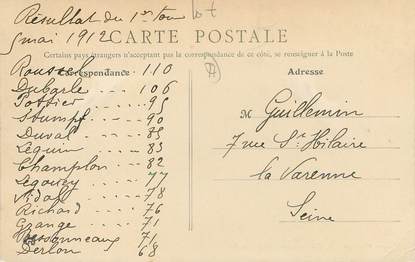 Résultat du 1er tour
5 mai 1912
CARTE POSTALE
Certains pays étrangers n'acceptant pas la correspondance de ce côté, se renseigner à la Poste
Correspondance
Roussel 110
Dubarle ... 106
Pottier ... 95
Stumpf ... 90
Duval ... 85
Lequin ... 83
Champlon ... 82
Legourey ... 77
Vidal ... 78
Richard ... 76
Grange ... 71
71
Derlon ... 68
Adresse
M Guillemin
7 rue St Hilaire
la Varenne
Seine